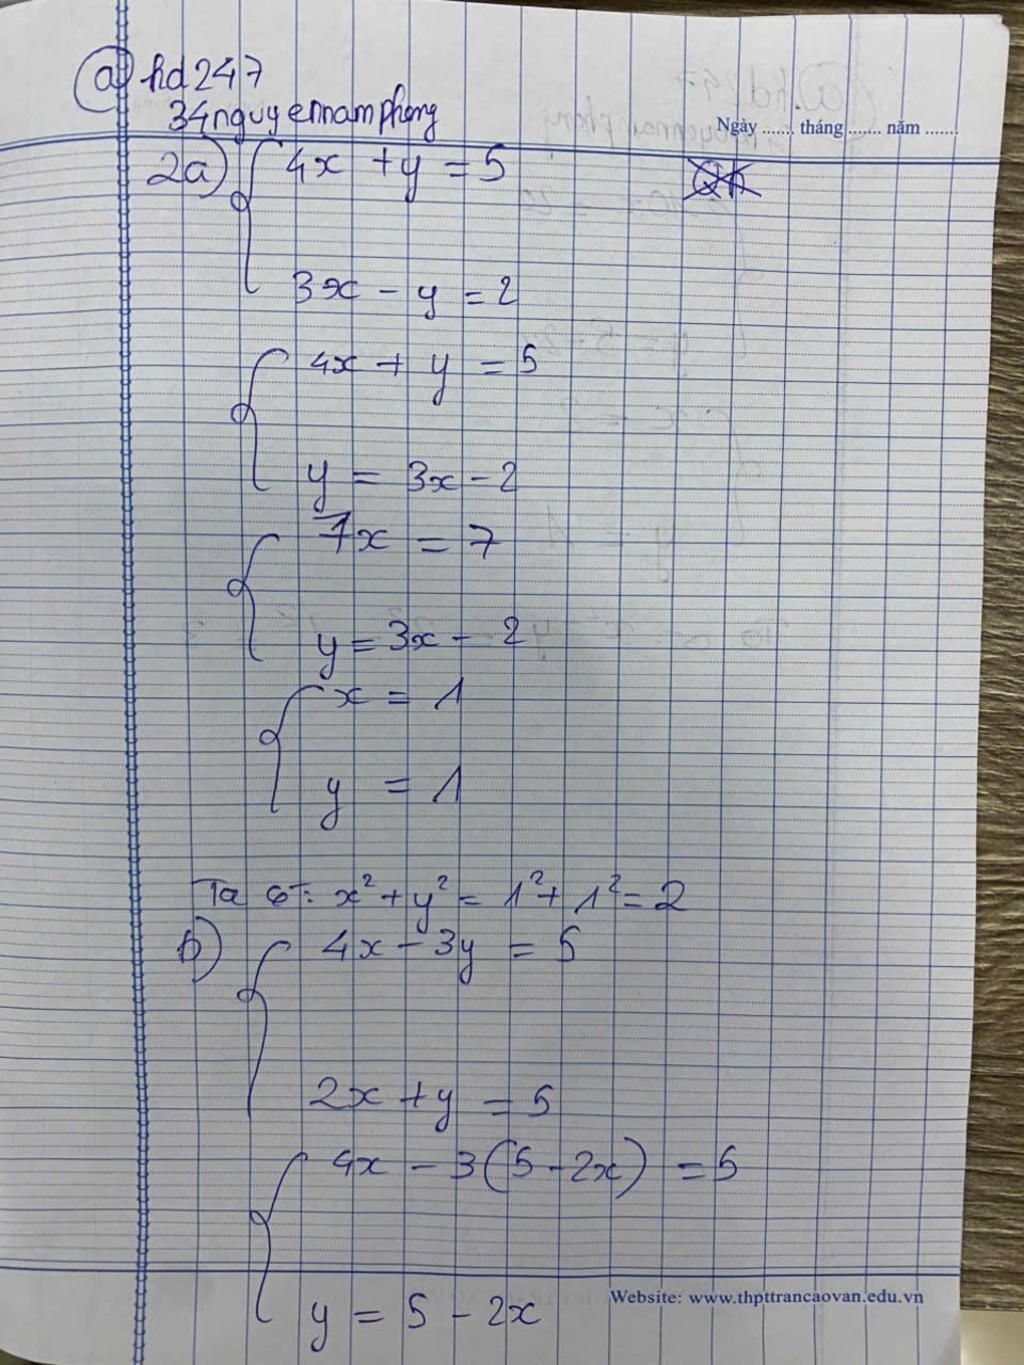 @hd247
34nguyennamphong
Ngày ....... tháng ....... năm .......
2a) { 4x + y = 5
3x - y = 2
{ 4x + y = 5
y = 3x - 2
{ 7x = 7
y = 3x - 2
{ x = 1
y = 1
Ta có: x² + y² = 1² + 1² = 2
b) { 4x - 3y = 5
2x + y = 5
{ 4x - 3(5 - 2x) = 5
y = 5 - 2x
Website: www.thpttrancaovan.edu.vn